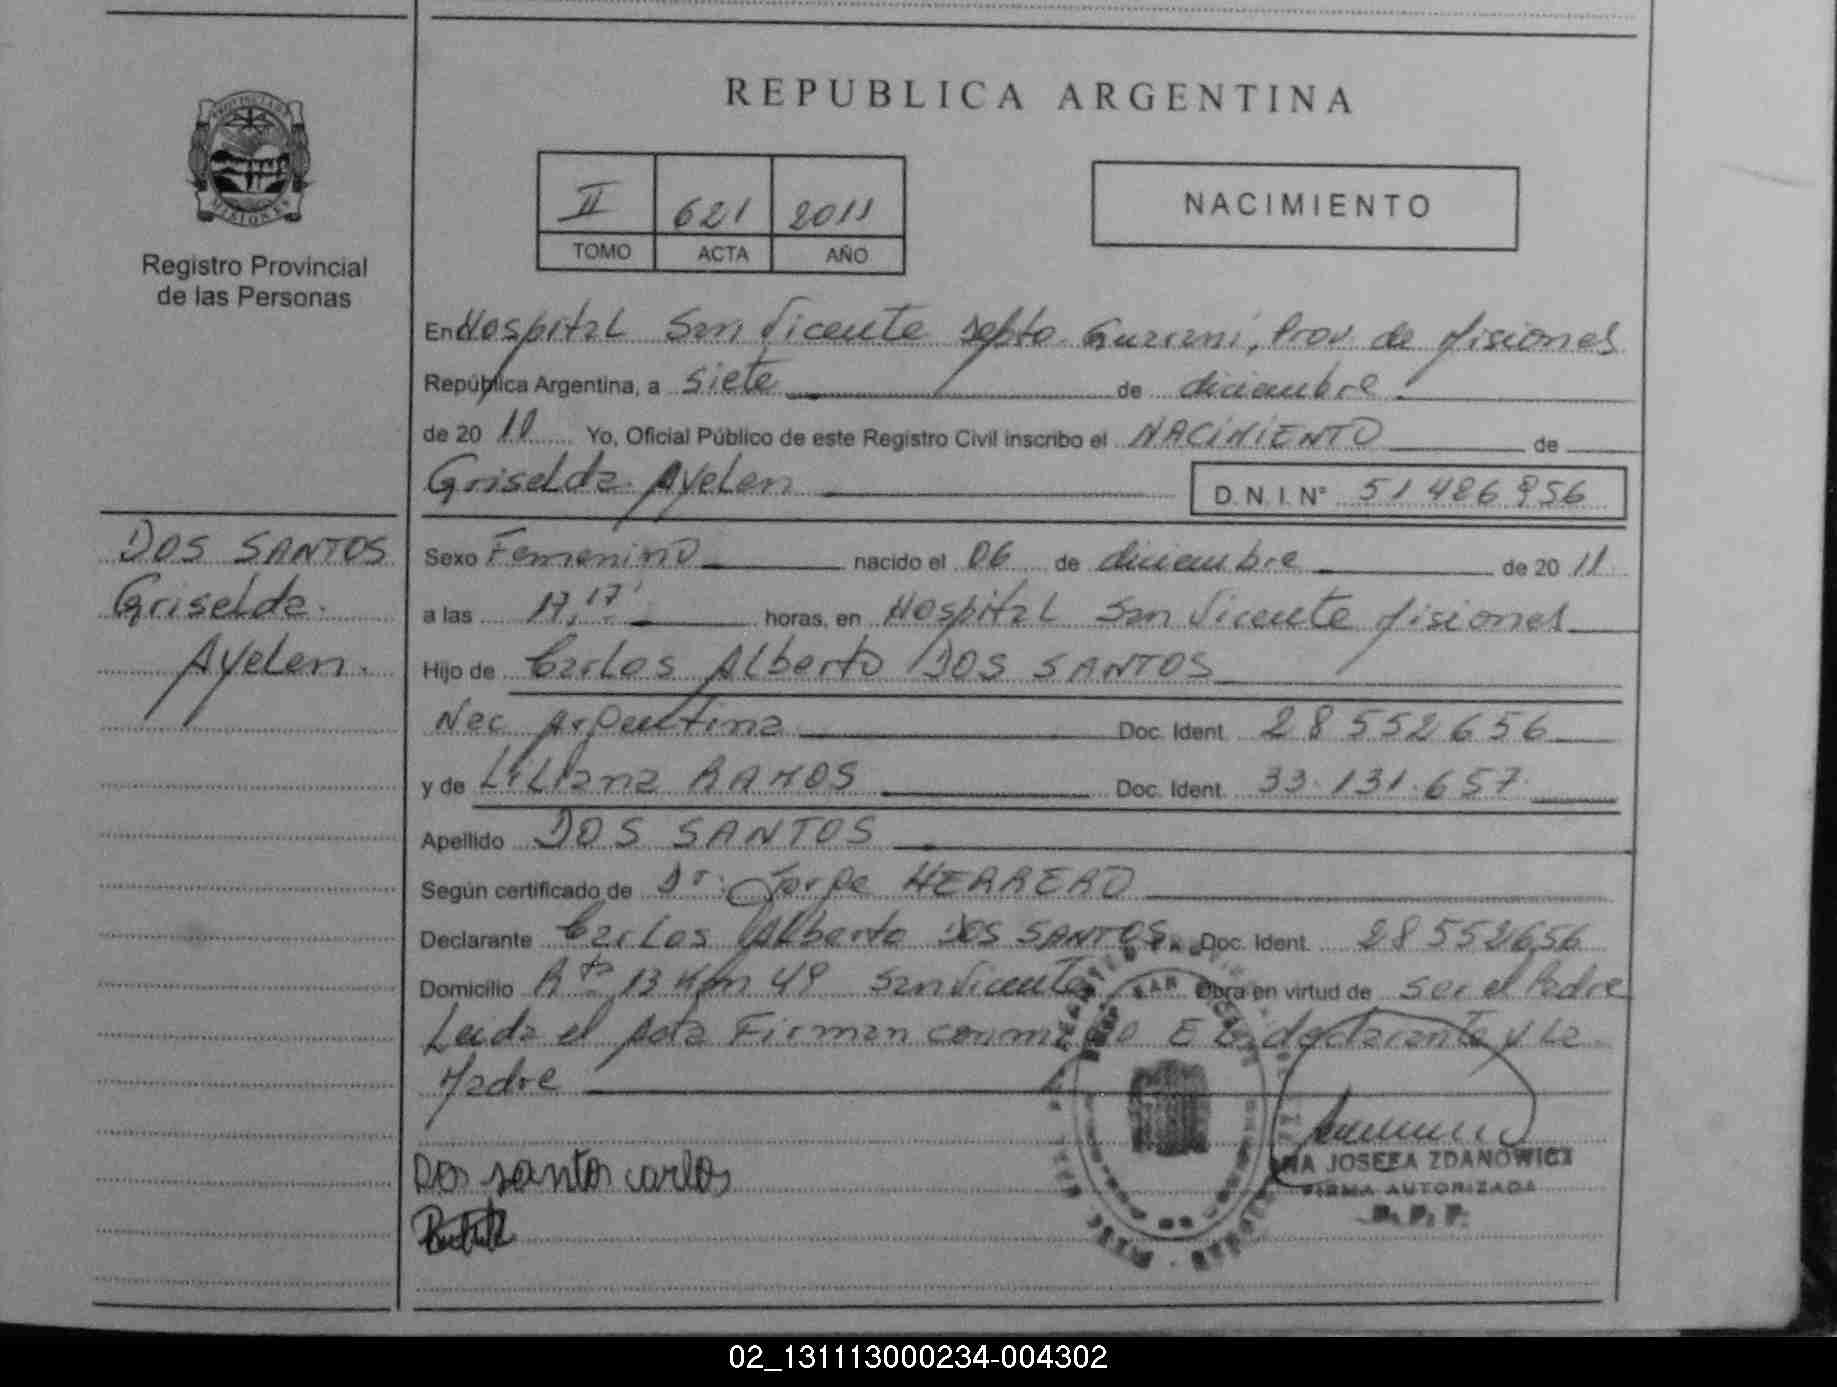 REPUBLICA ARGENTINA
PROVINCIA DE
MISIONES
Registro Provincial
de las Personas
II 621 2011
TOMO ACTA AÑO
NACIMIENTO
En Hospital San Vicente Depto. Guarani, Prov. de Misiones
República Argentina, a siete de diciembre
de 20 11 Yo, Oficial Público de este Registro Civil inscribo el NACIMIENTO de
Griselda Ayelen D.N.I. N° 51486956
DOS SANTOS
Griselda.
Ayelen.
Sexo Femenino nacido el 06 de diciembre de 20 11
a las 17,17' horas, en Hospital San Vicente Misiones
Hijo de Carlos Alberto DOS SANTOS
Nac Argentina Doc. Ident. 28552656
y de Liliana RAMOS Doc. Ident. 33.131.657
Apellido DOS SANTOS
Según certificado de Dr. Jorge HERRERO
Declarante Carlos Alberto DOS SANTOS Doc. Ident. 28552656
Domicilio Rta 13 Km 49 San Vicente Obra en virtud de ser el Padre
Leida el Acta Firman conmigo El declarante y La
Madre
Dos santos carlos
JOSEFA ZDANOWICZ
FIRMA AUTORIZADA
02_131113000234-004302